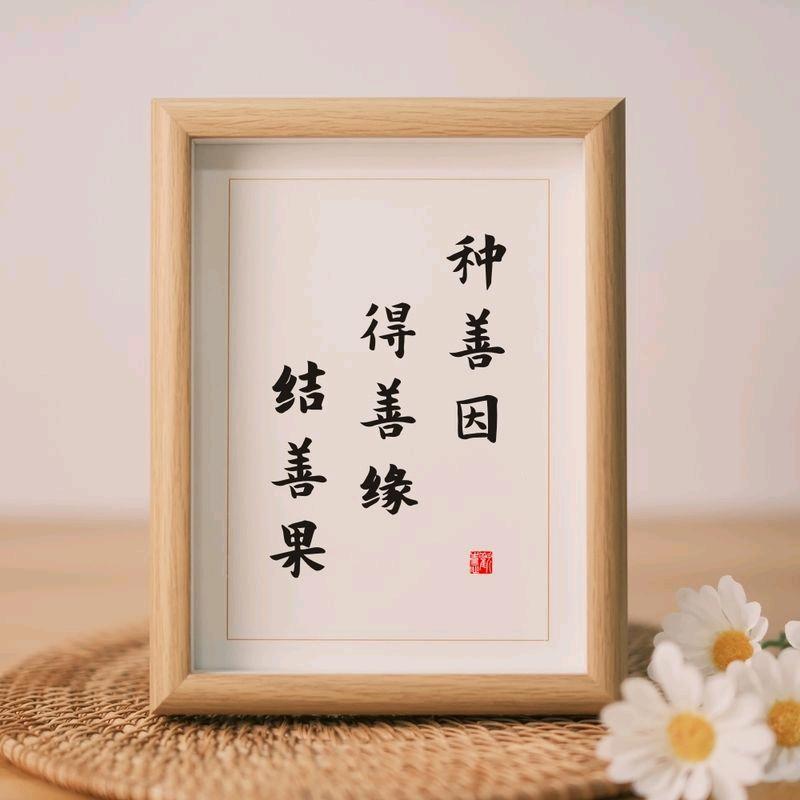 种善因
得善缘
结善果